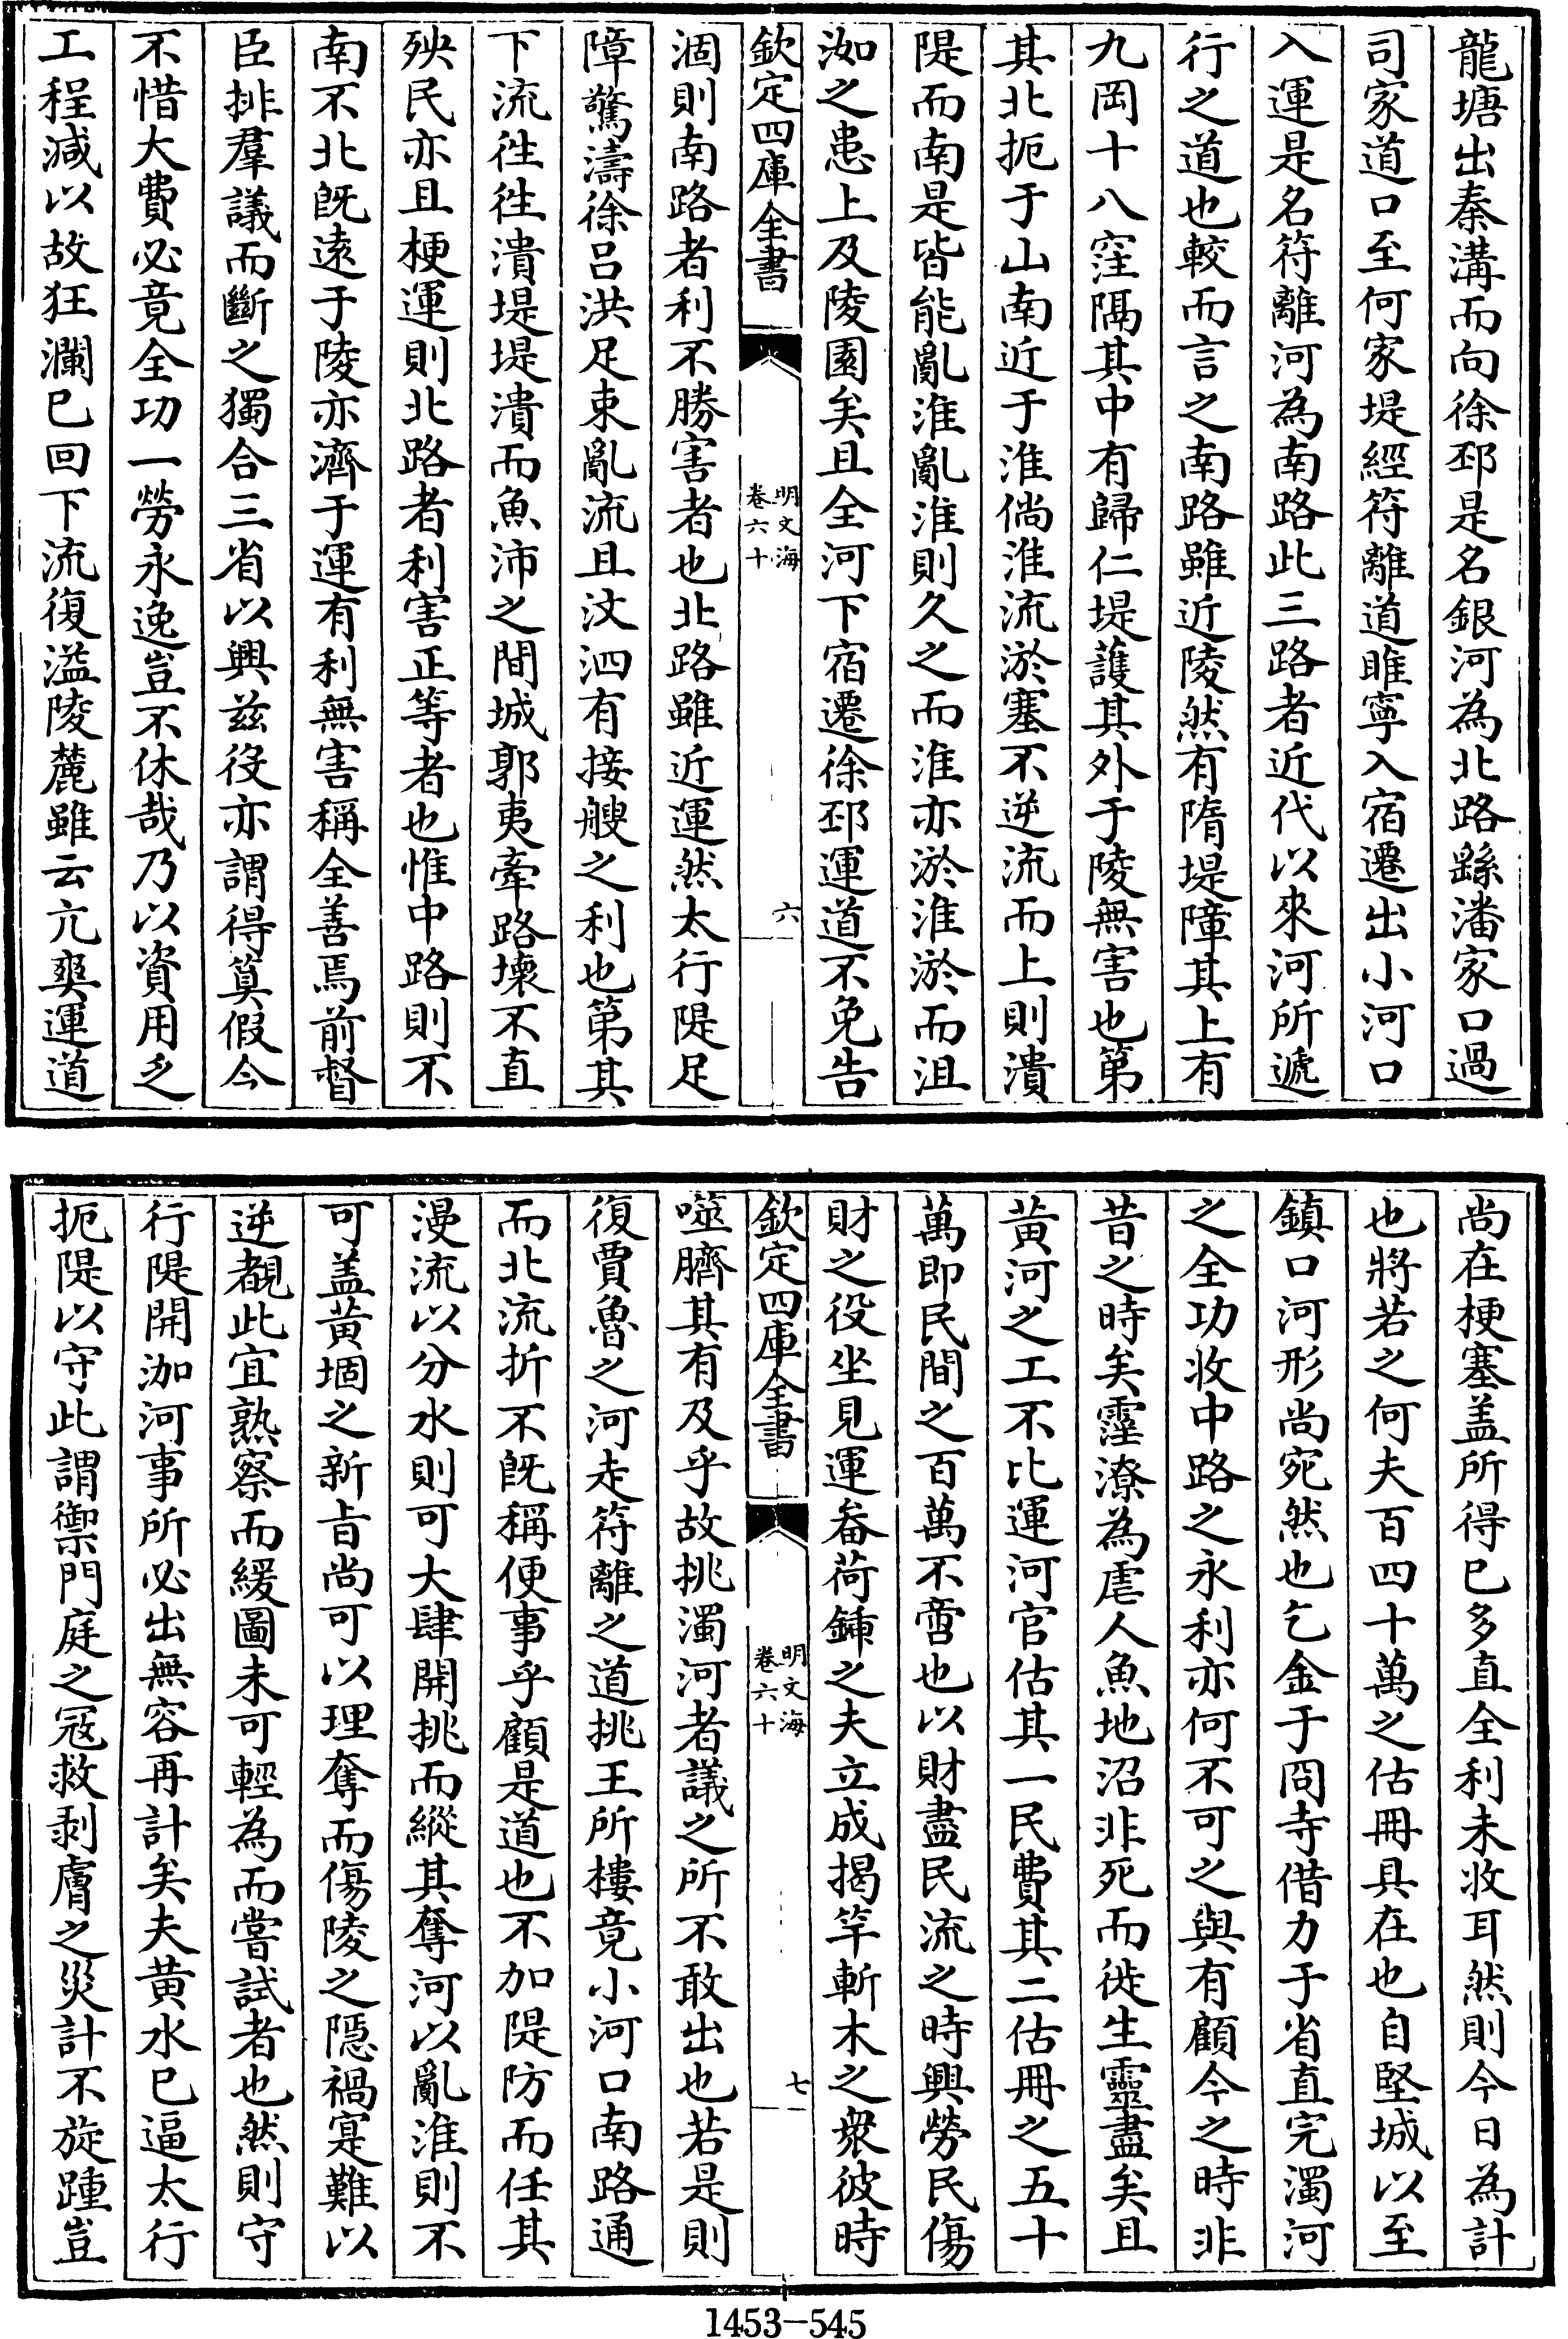 龍塘出秦溝而向徐邳是名銀河為北路繇潘家口過
司家道口至何家堤經符離道睢寧入宿遷出小河口
入運是名符離河為南路此三路者近代以來河所遞
行之道也較而言之南路雖近陵然有隋堤障其上有
九岡十八窪隔其中有歸仁堤護其外于陵無害也第
其北扼于山南近于淮倘淮流淤塞不逆流而上則潰
隄而南是皆能亂淮亂淮則久之而淮亦淤淮淤而沮
洳之患上及陵園矣且全河下宿遷徐邳運道不免告
欽定四庫全書
明文海
卷六十
六
涸則南路者利不勝害者也北路雖近運然太行隄足
障驚濤徐呂洪足束亂流且汶泗有接艘之利也第其
下流徃徃潰堤堤潰而魚沛之間城郭夷牽路壞不直
殃民亦且梗運則北路者利害正等者也惟中路則不
南不北既遠于陵亦濟于運有利無害稱全善焉前督
臣排羣議而斷之獨合三省以興兹役亦謂得算假令
不惜大費必竟全功一勞永逸豈不休哉乃以資用乏
工程減以故狂瀾已回下流復溢陵麓雖云亢爽運道
尚在梗塞盖所得已多直全利未收耳然則今日為計
也將若之何夫百四十萬之估冊具在也自堅城以至
鎮口河形尚宛然也乞金于冏寺借力于省直完濁河
之全功收中路之永利亦何不可之與有顧今之時非
昔之時矣霪潦為虐人魚地沼非死而徙生靈盡矣且
黃河之工不比運河官估其一民費其二估冊之五十
萬即民間之百萬不啻也以財盡民流之時興勞民傷
財之役坐見運畚荷鍤之夫立成揭竿斬木之衆彼時
欽定四庫全書
明文海
卷六十
七
噬臍其有及乎故挑濁河者議之所不敢出也若是則
復賈魯之河走符離之道挑王所樓竟小河口南路通
而北流折不既稱便事乎顧是道也不加隄防而任其
漫流以分水則可大肆開挑而縱其奪河以亂淮則不
可盖黃堌之新㫖尚可以理奪而傷陵之隱禍寔難以
逆覩此宜熟察而緩圖未可輕為而嘗試者也然則守
行隄開泇河事所必出無容再計矣夫黃水已逼太行
扼隄以守此謂禦門庭之寇救剥膚之災計不旋踵豈
1453-545